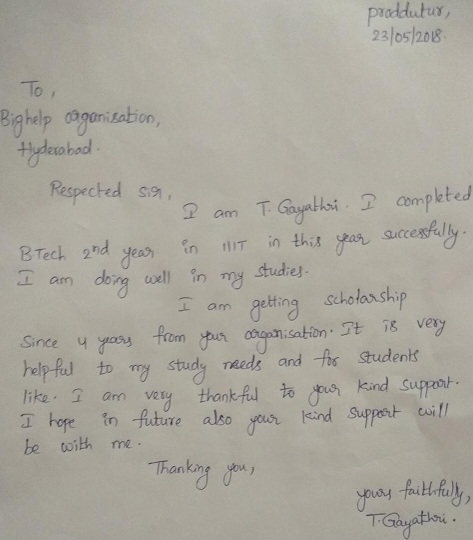 praddutur,
23/05/2018.
To,
Bighelp organisation,
Hyderabad.
Respected sir,
I am T. Gayathri. I completed
BTech 2nd year in IIIT in this year successfully.
I am doing well in my studies.
I am getting scholarship
Since 4 years from your organisation. It is very
helpful to my study needs and for students
like. I am very thankful to your kind support.
I hope in future also your kind support will
be with me.
Thanking you,
yours faithfully,
T. Gayathri.